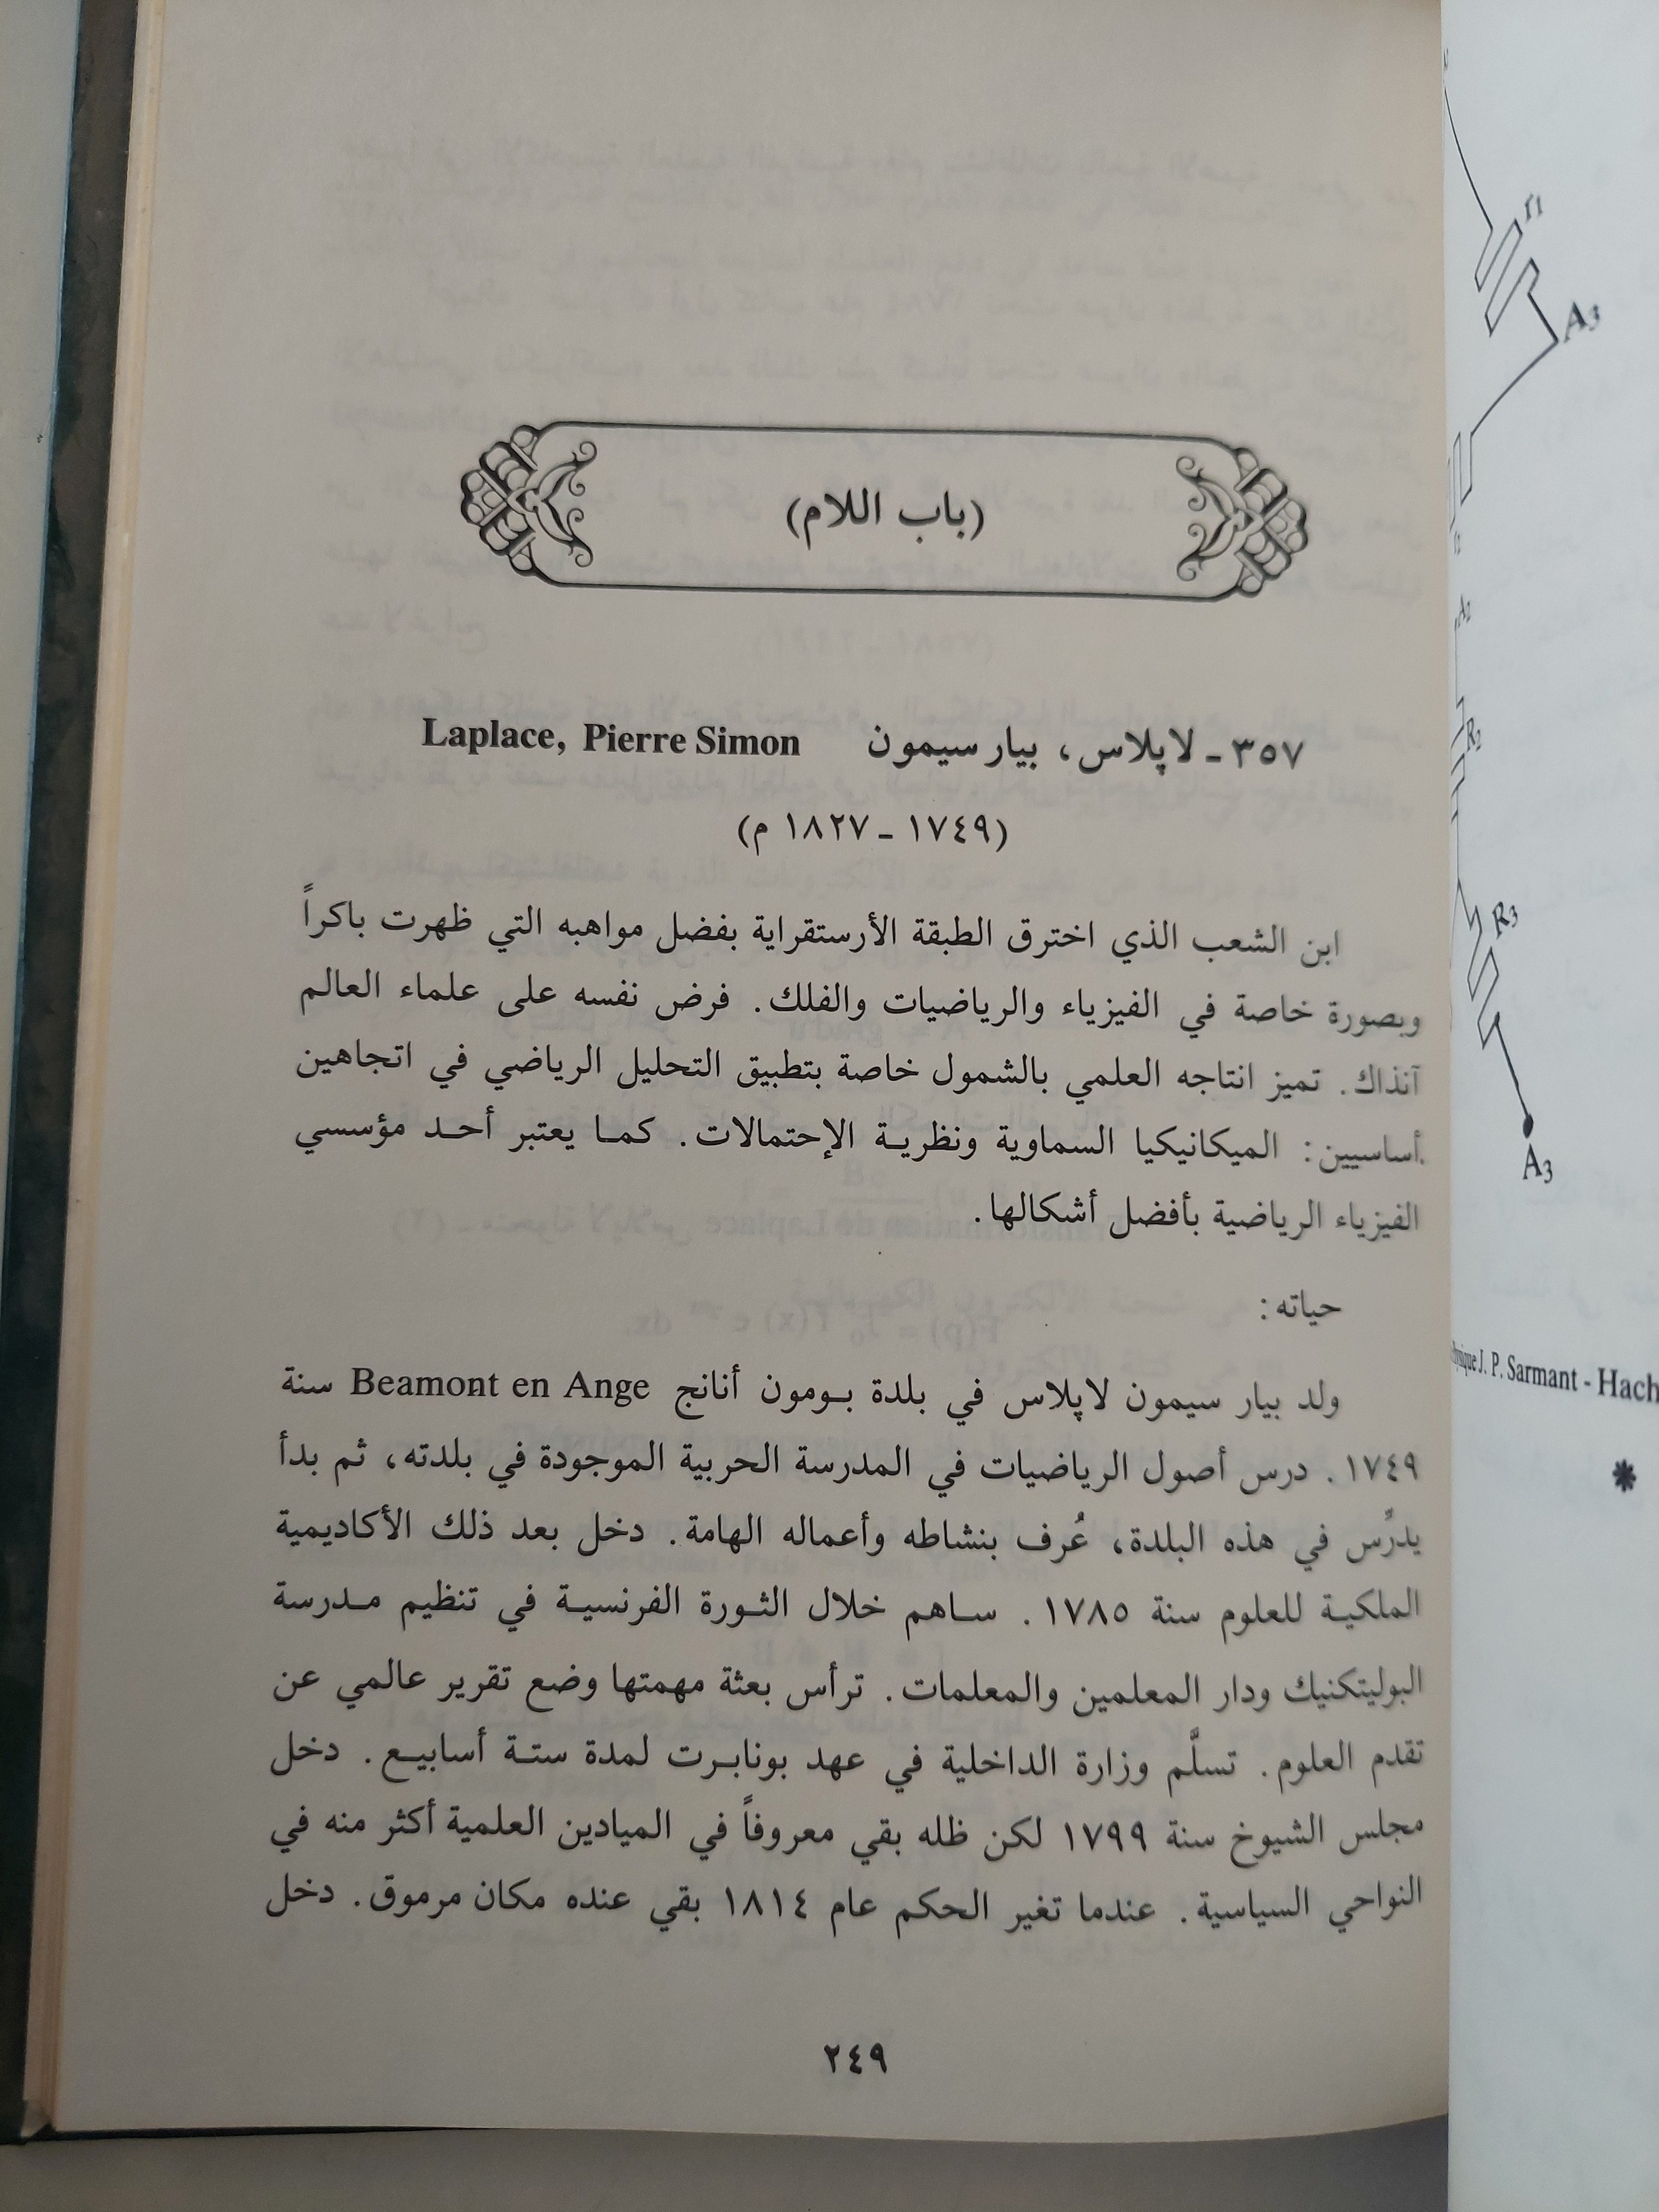 (باب اللام)
٣٥٧ - لاپلاس، بيار سيمون Laplace, Pierre Simon
(١٧٤٩ - ١٨٢٧ م)
ابن الشعب الذي اخترق الطبقة الأرستقراية بفضل مواهبه التي ظهرت باكراً
وبصورة خاصة في الفيزياء والرياضيات والفلك. فرض نفسه على علماء العالم
آنذاك. تميز انتاجه العلمي بالشمول خاصة بتطبيق التحليل الرياضي في اتجاهين
أساسيين: الميكانيكيا السماوية ونظرية الإحتمالات. كما يعتبر أحد مؤسسي
الفيزياء الرياضية بأفضل أشكالها.
حياته:
ولد بيار سيمون لاپلاس في بلدة بومون أنانج Beamont en Ange سنة
١٧٤٩. درس أصول الرياضيات في المدرسة الحربية الموجودة في بلدته، ثم بدأ
يدرِّس في هذه البلدة، عُرف بنشاطه وأعماله الهامة. دخل بعد ذلك الأكاديمية
الملكية للعلوم سنة ١٧٨٥. ساهم خلال الثورة الفرنسية في تنظيم مدرسة
البوليتكنيك ودار المعلمين والمعلمات. ترأس بعثة مهمتها وضع تقرير عالمي عن
تقدم العلوم. تسلَّم وزارة الداخلية في عهد بونابرت لمدة ستة أسابيع. دخل
مجلس الشيوخ سنة ١٧٩٩ لكن ظله بقي معروفاً في الميادين العلمية أكثر منه في
النواحي السياسية. عندما تغير الحكم عام ١٨١٤ بقي عنده مكان مرموق. دخل
٢٤٩
r1
A3
A2
R2
R3
A3
J. P. Sarmant - Hach
*